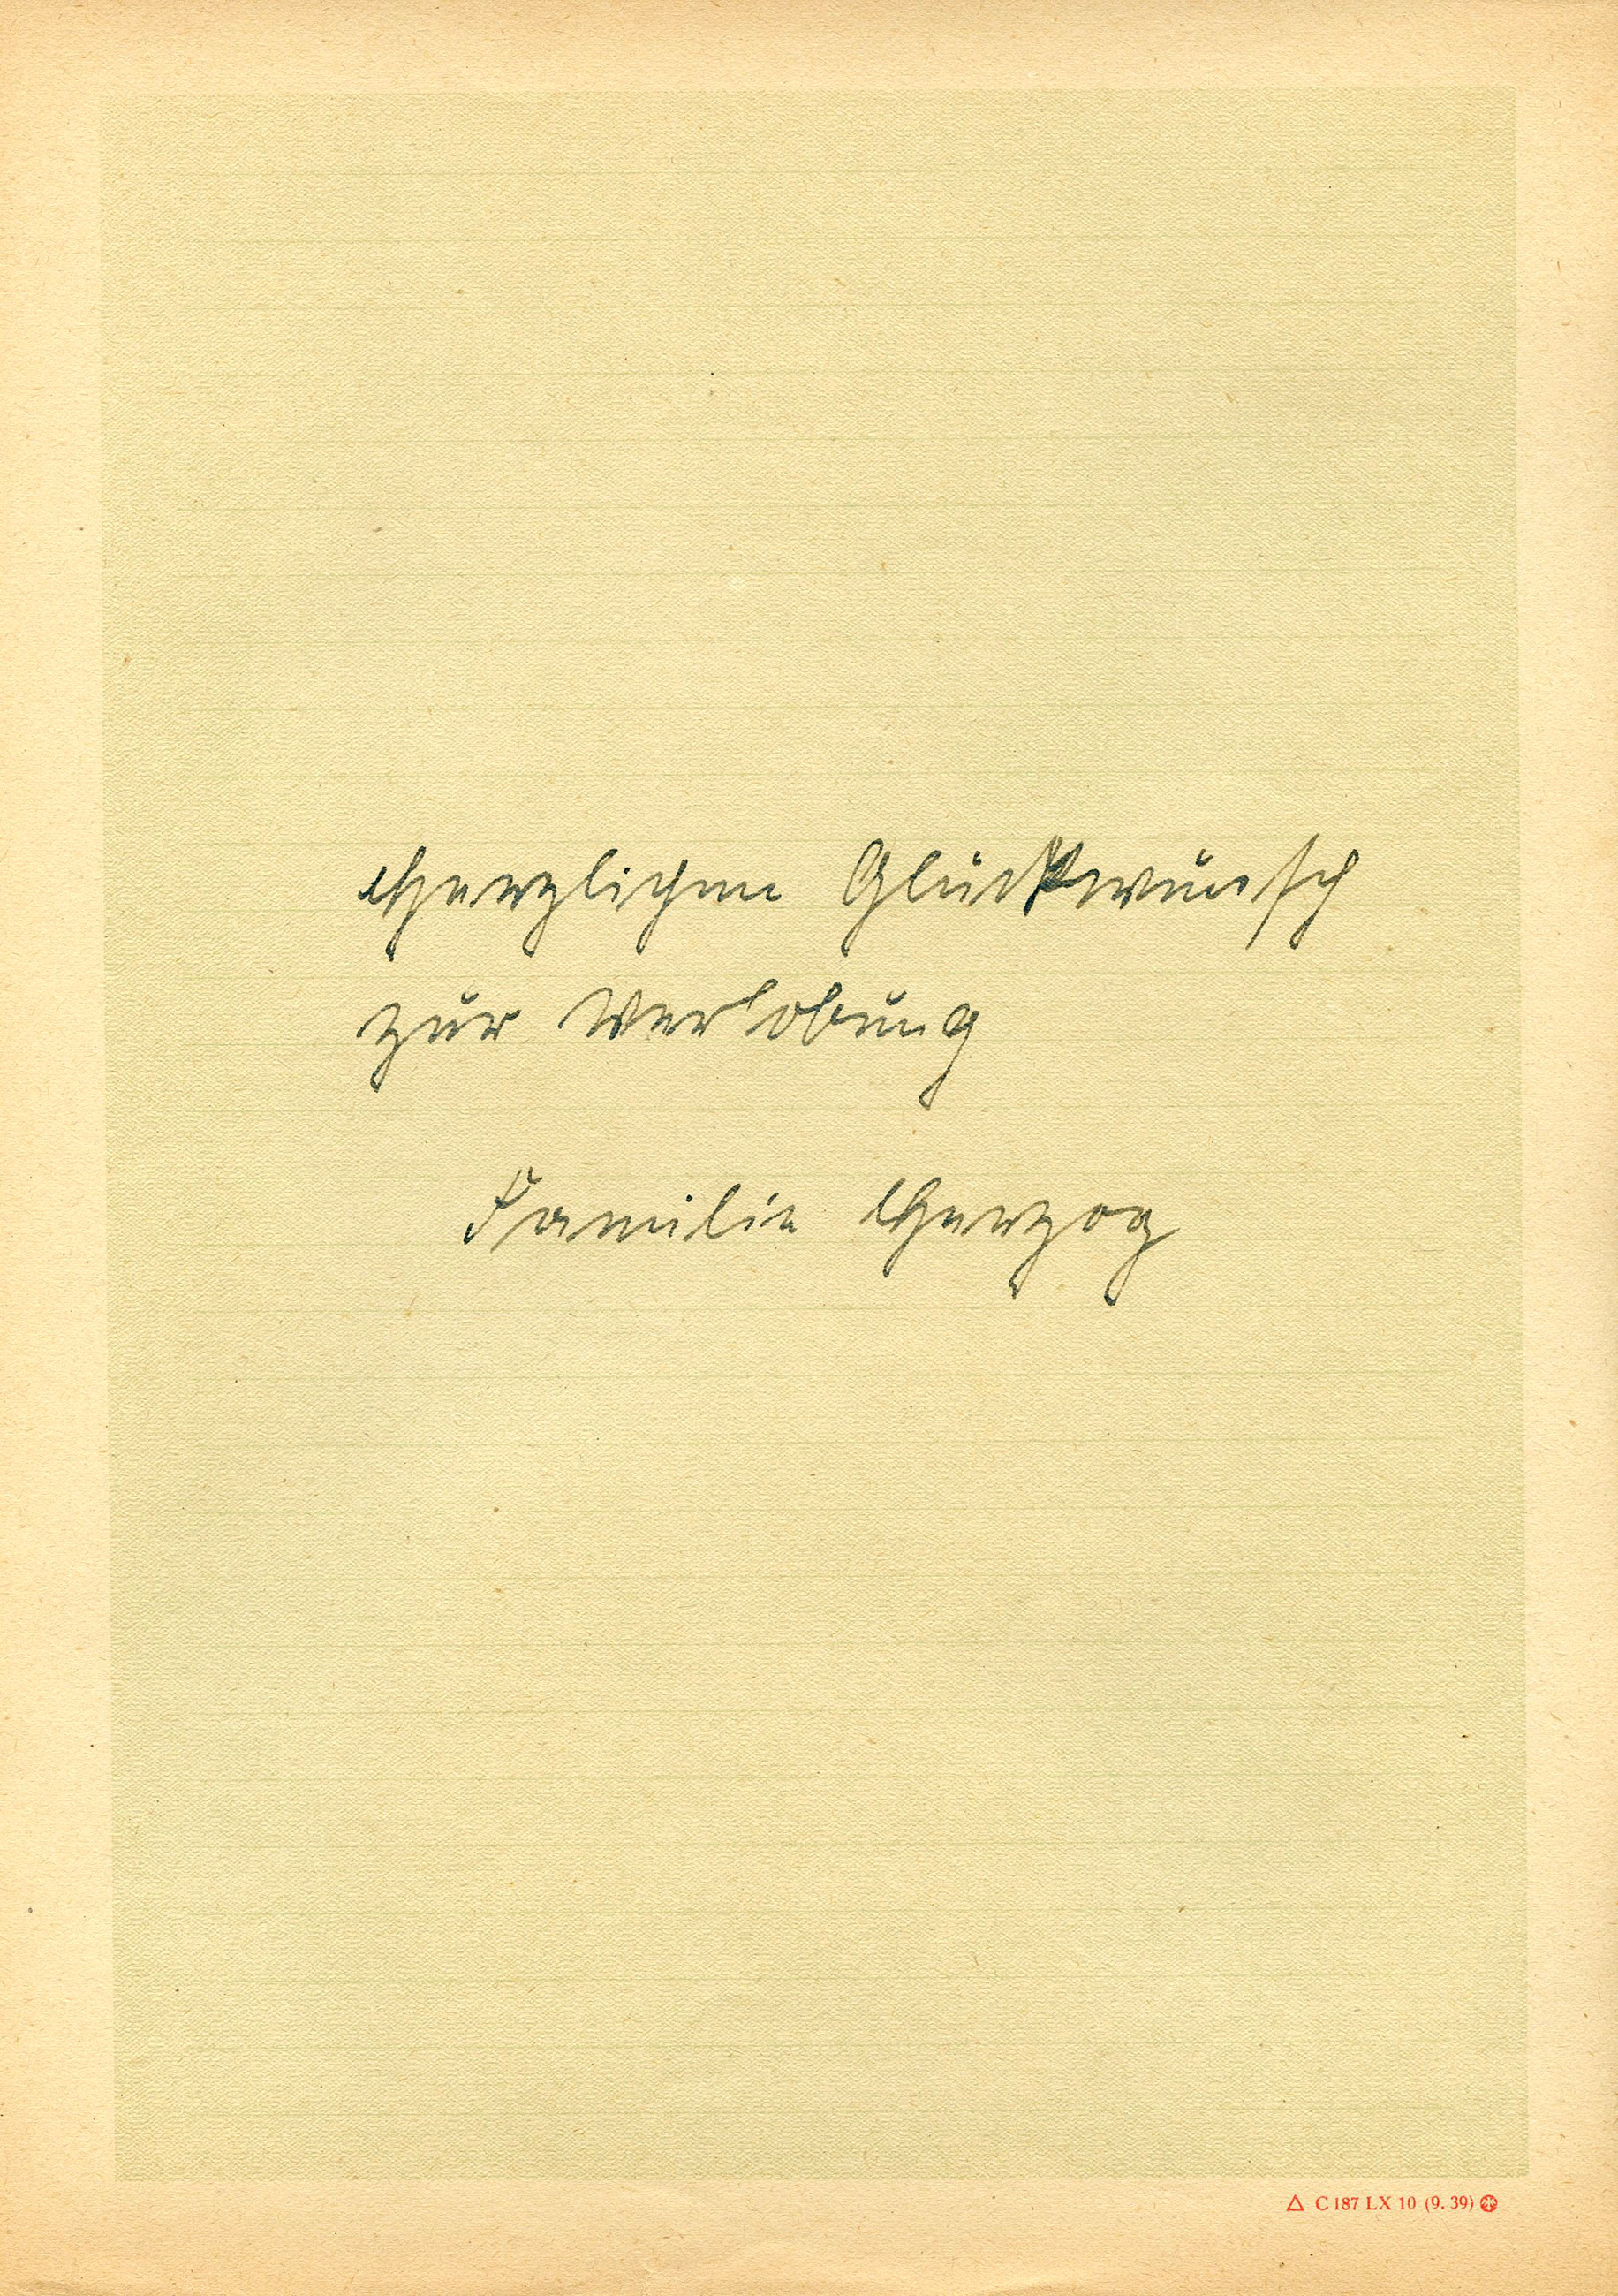 Herzlichen Glückwunsch
zur Verlobung
Familie Herzog
△ C 187 LX 10 (9. 39)